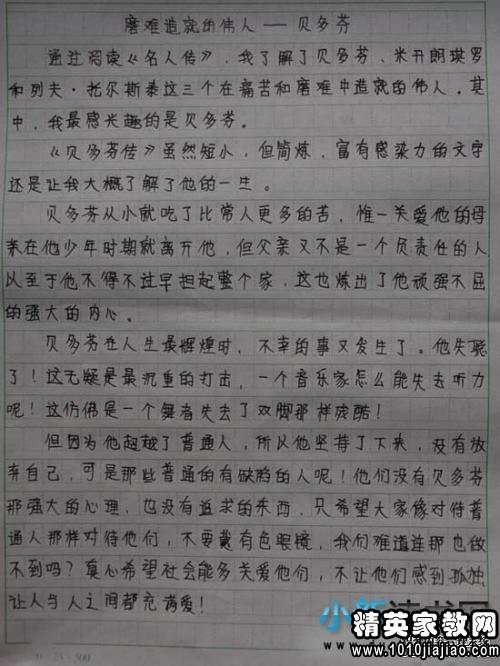 磨难造就的伟人——贝多芬
通过阅读《名人传》,我了解了贝多芬、米开朗琪罗
和列夫·托尔斯泰这三个在痛苦和磨难中造就的伟人。其
中,我最感兴趣的是贝多芬。
《贝多芬传》虽然短小,但简炼,富有感染力的文字
还是让我大概了解了他的一生。
贝多芬从小就吃了比常人更多的苦,惟一关爱他的母
亲在他少年时期就离开他,但父亲又不是一个负责任的人
以至于他不得不过早担起整个家,这也炼出了他顽强不屈
的强大的内心。
贝多芬在人生最辉煌时,不幸的事又发生了。他失聪
了!这无疑是最沉重的打击,一个音乐家怎么能失去听力
呢!这仿佛是一个舞者失去了双脚那样残酷!
但因为他超越了普通人,所以他坚持了下来,没有放
弃自己,可是那些普通的有缺陷的人呢!他们没有贝多芬
那强大的心理,也没有追求的东西,只希望大家像对待普
通人那样对待他们,不要戴有色眼镜,我们难道连那也做
不到吗?真心希望社会能多关爱他们,不让他们感到孤独
让人与人之间都充满爱!
精英家教网
www.1010jiajiao.com